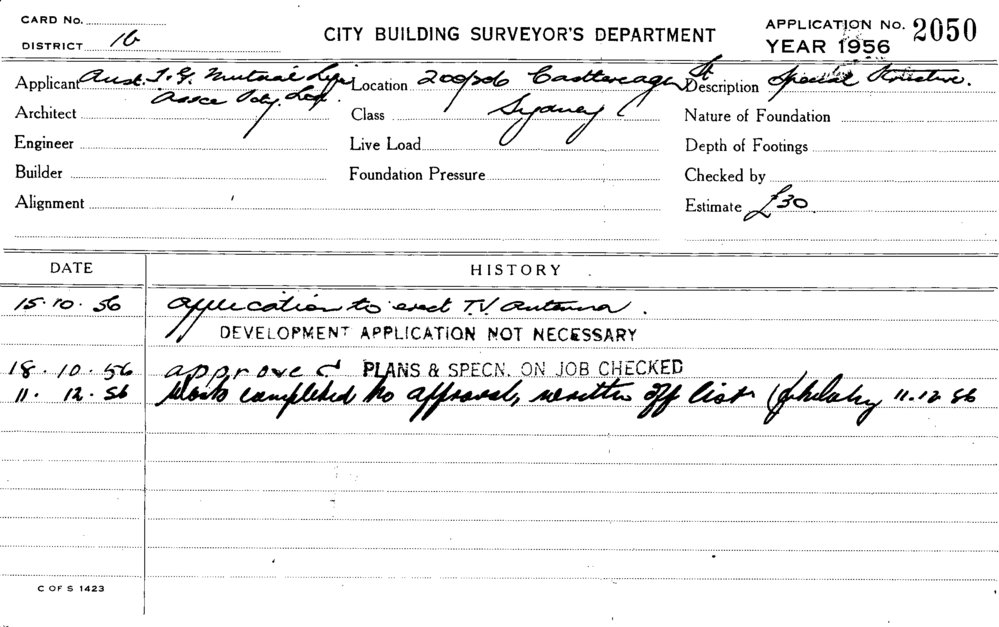 CARD No.
DISTRICT 16
CITY BUILDING SURVEYOR'S DEPARTMENT
APPLICATION No. 2050
YEAR 1956
Applicant Aust. T. G. Mutual Life
Assce Socy. Ltd.
Location 200/206 Castlereagh St
Sydney
Description Special
Architect
Class
Nature of Foundation
Engineer
Live Load
Depth of Footings
Builder
Foundation Pressure
Checked by
Alignment
Estimate £30.
DATE HISTORY
15.10.56 Application to erect T.V. antenna.
DEVELOPMENT APPLICATION NOT NECESSARY
18.10.56 approved PLANS & SPECN. ON JOB CHECKED
11.12.56 Work completed to approval, written off list 11.12.56
C OF S 1423